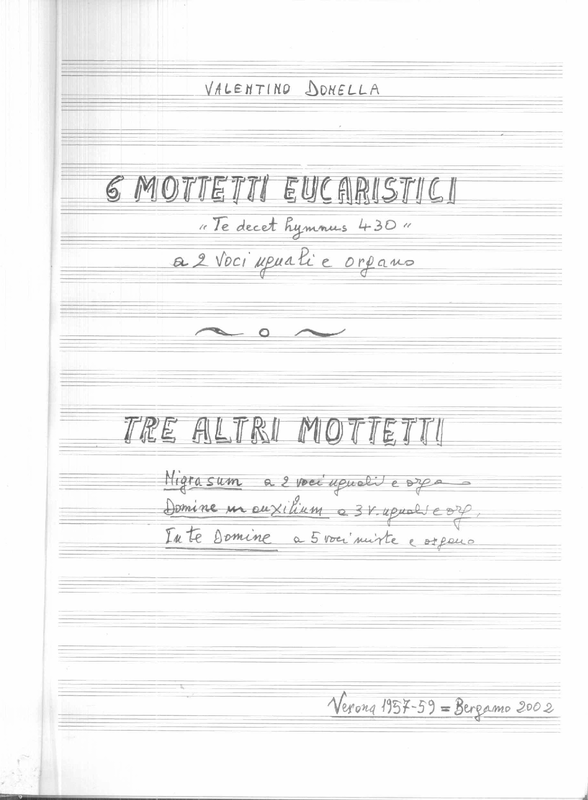 VALENTINO DONELLA
6 MOTTETTI EUCARISTICI
"Te decet hymnus 430"
a 2 voci uguali e organo
TRE ALTRI MOTTETTI
Nigra sum a 2 voci uguali e organo
Domine in auxilium a 3 v. uguali e org.
In te Domine a 5 voci miste e organo
Verona 1957-59 = Bergamo 2002